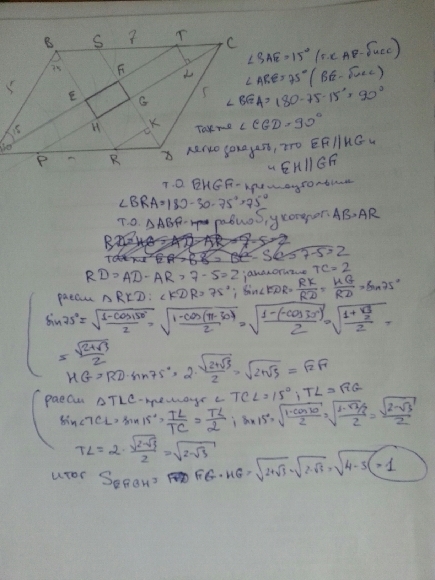 B S 7 T C
5 F L 5
E G
H K
15
P R D
∠BAE=15° (т.к. AF-бисс)
∠ABE=75° (BE-бисс)
∠BEA=180-75-15°=90°
также ∠CGD=90°
легко доказать, что EF∥HG и
и EH∥GF
т.о. EHGF-прямоугольник
∠BRA=180-30-75°=75°
т.о. △ABR равноб, у которого AB=AR
RD=HG=AD-AR=7-5=2
также
RD=AD-AR=7-5=2; аналогично TC=2
рассм △RKD: ∠KDR=75°; sin∠KDR=RK/RD=HG/RD=sin75°
sin75°=√((1-cos150°)/2)=√((1-cos(π-30))/2)=√((1-(-cos30°))/2)=√((1+√3/2)/2)=
=√(2+√3)/2
HG=RD·sin75°=2·√(2+√3)/2=√(2+√3)=EF
рассм △TLC-прямоуг ∠TCL=15°; TL=FG
sin∠TCL=sin15°=TL/TC=TL/2; sin15°=√((1-cos30)/2)=√((1-√3/2)/2)=√(2-√3)/2
TL=2·√(2-√3)/2=√(2-√3)
итог S = FG·HG=√(2+√3)·√(2-√3)=√(4-3)=1